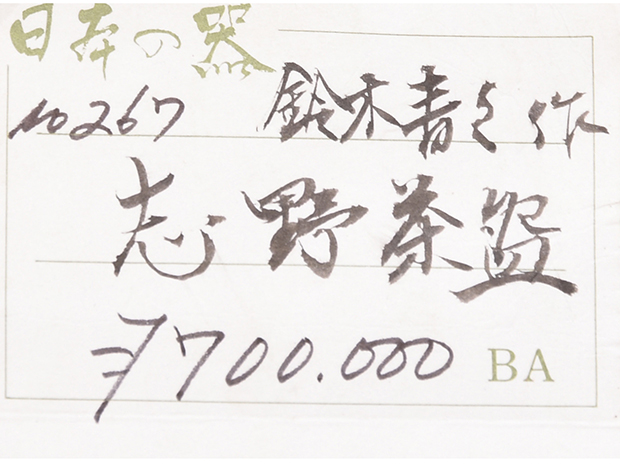 日本の器
No 267 鈴木青々作
志野茶盌
¥700.000 BA